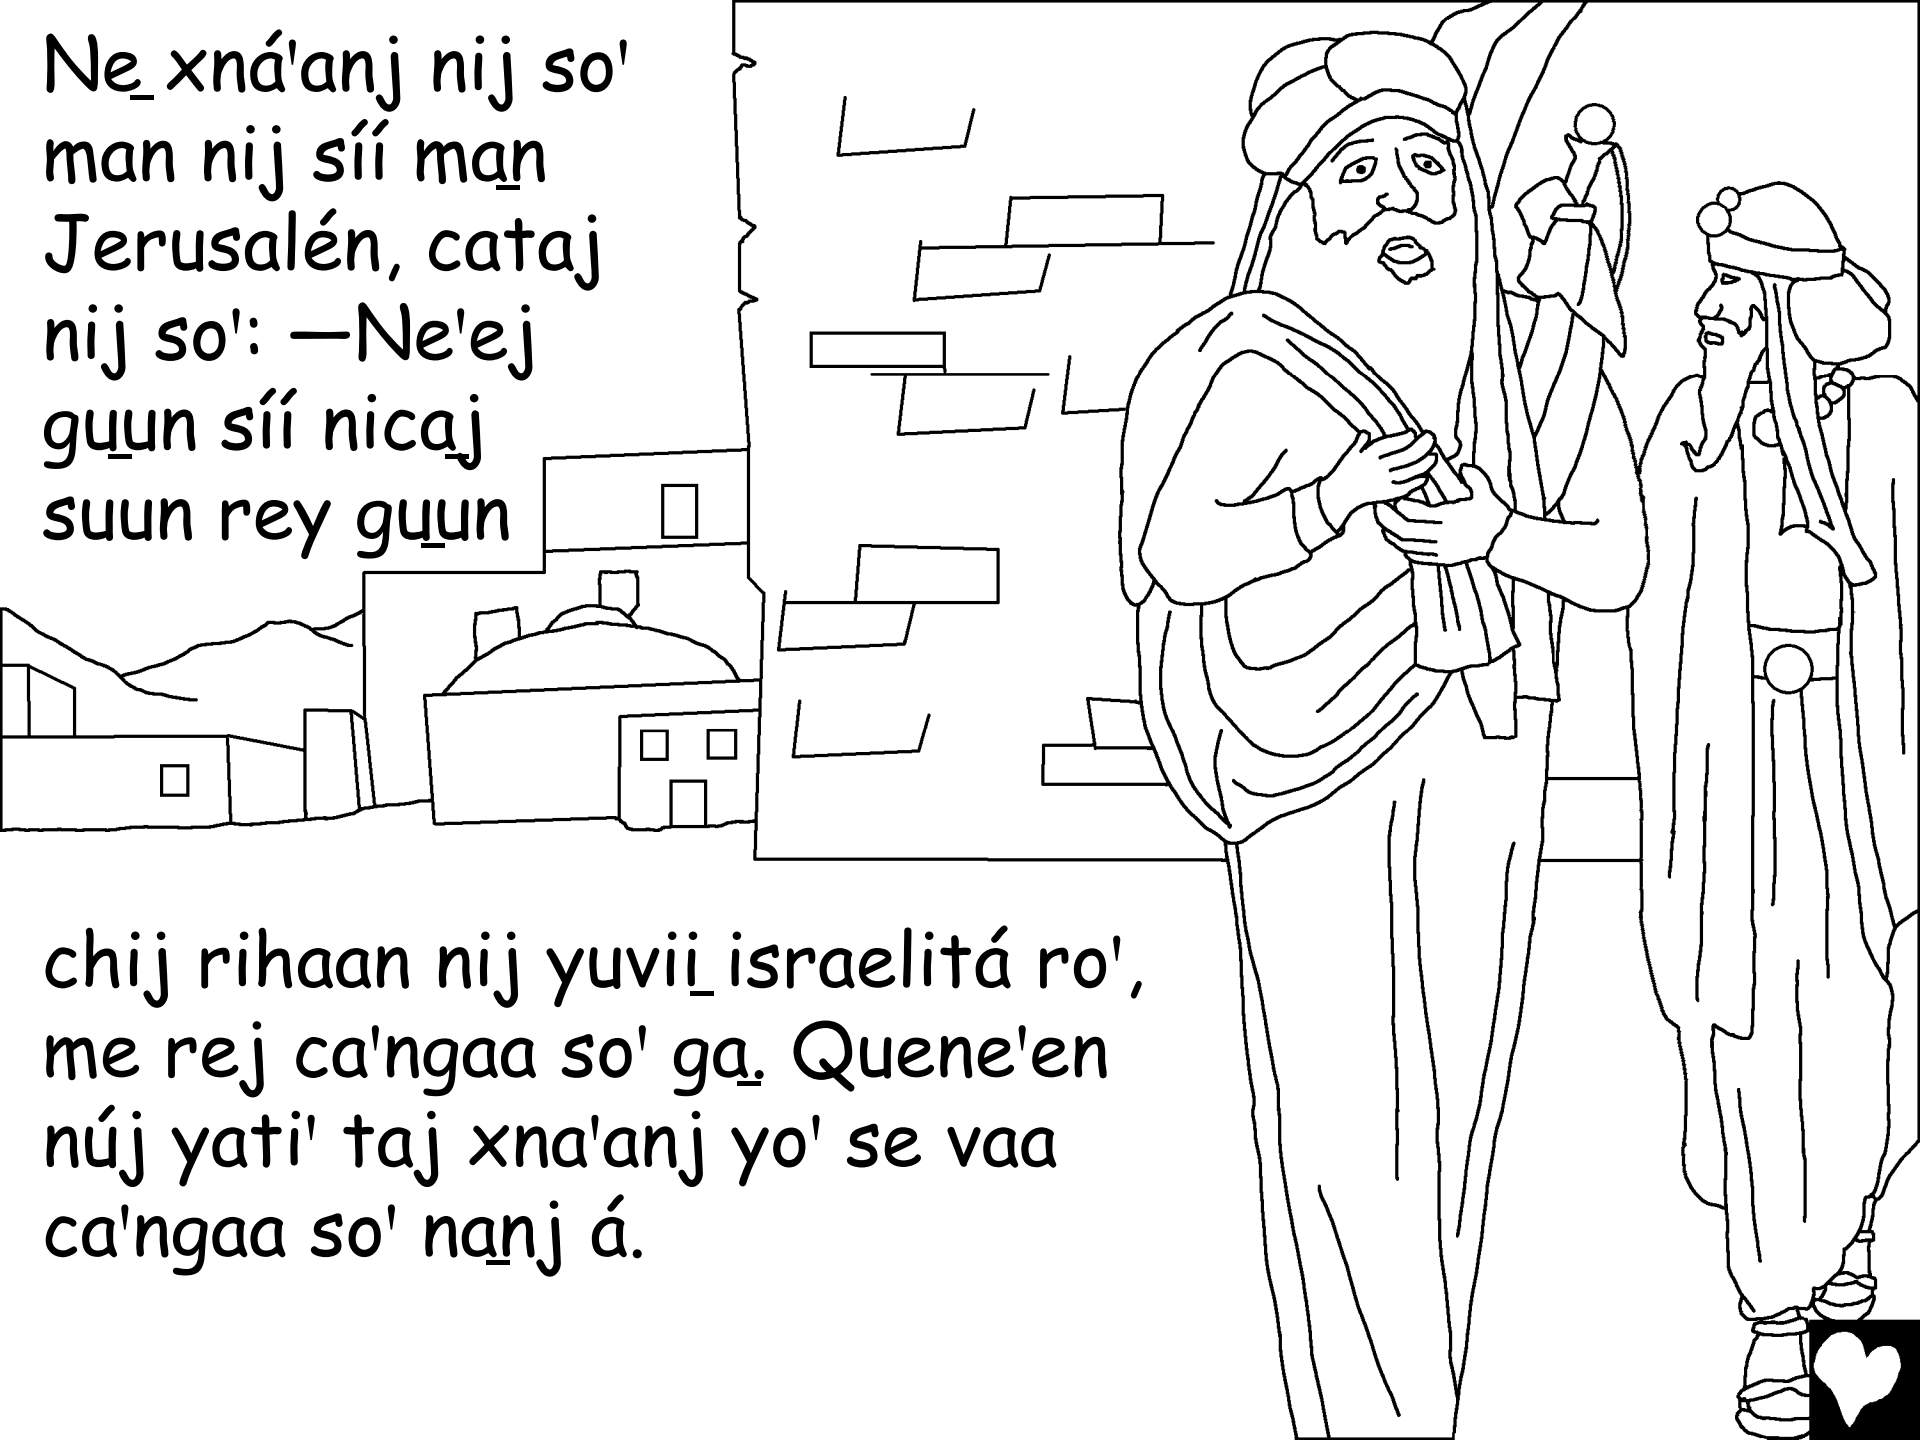 Ne̱ xná'anj nij so'
man nij síí ma̱n
Jerusalén, cataj
nij so': —Ne'ej
gu̱un síí nica̱j
suun rey gu̱un
chij rihaan nij yuvii̱ israelitá ro',
me rej ca'ngaa so' ga̱. Quene'en
núj yati' taj xna'anj yo' se vaa
ca'ngaa so' na̱nj á.